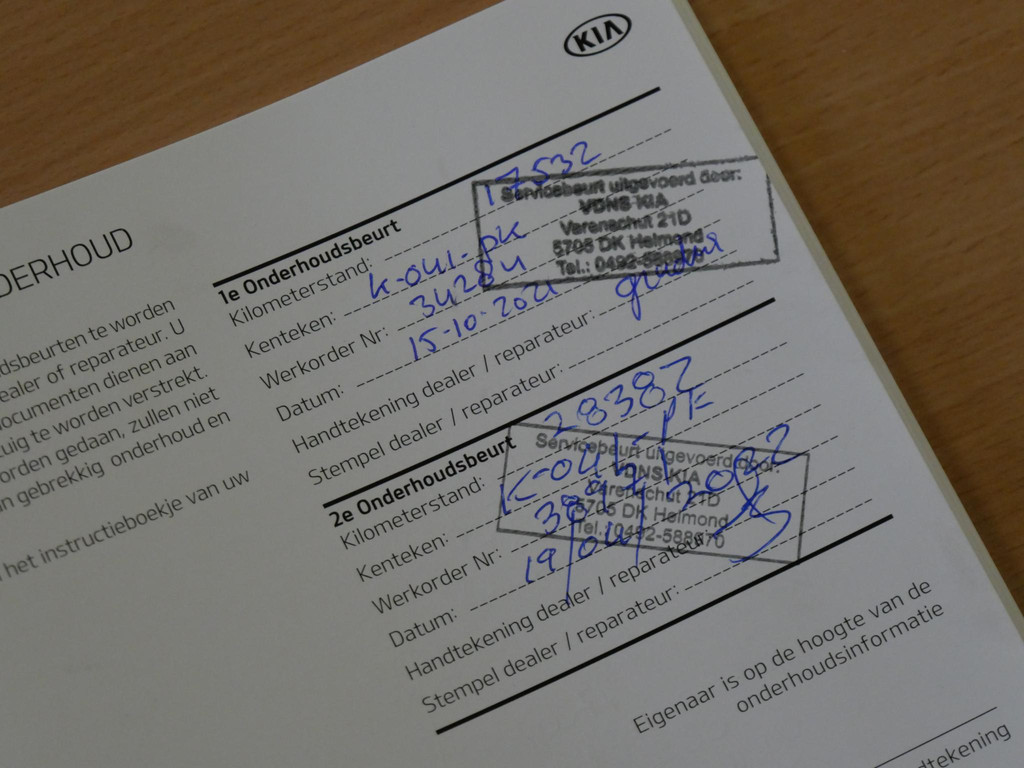 KIA
DERHOUD
dsbeurten te worden
ealer of reparateur. U
ocumenten dienen aan
uig te worden verstrekt.
orden gedaan, zullen niet
n gebrekkig onderhoud en
het instructieboekje van uw
1e Onderhoudsbeurt
Kilometerstand: 17532
Kenteken: K-041-DK
Werkorder Nr: 34284
Datum: 15-10-2021
Handtekening dealer / reparateur:
Stempel dealer / reparateur:
Servicebeurt uitgevoerd door:
VDNS KIA
Varenschut 21D
5705 DK Helmond
Tel.: 0492-588
2e Onderhoudsbeurt
Kilometerstand: 28387
Kenteken:
Werkorder Nr:
Datum: 19/04/2022
Handtekening dealer / reparateur:
Stempel dealer / reparateur:
Servicebeurt uitgevoerd door:
VDNS KIA
Varenschut 21D
5705 DK Helmond
Tel.: 0492-588670
Eigenaar is op de hoogte van de
onderhoudsinformatie
dtekening